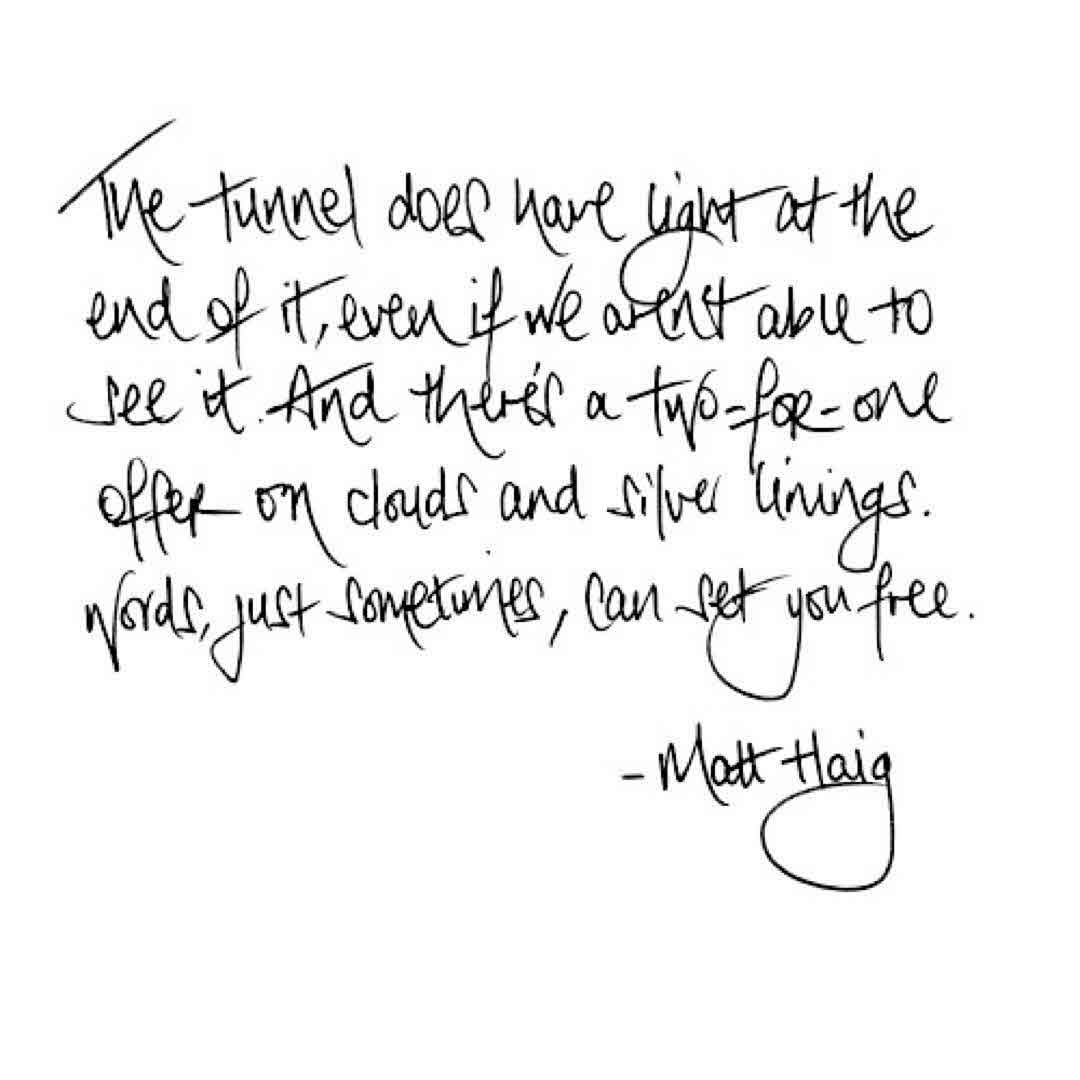 The tunnel does have light at the
end of it, even if we aren't able to
see it. And there's a two-for-one
offer on clouds and silver linings.
Words, just sometimes, can set you free.
- Matt Haig